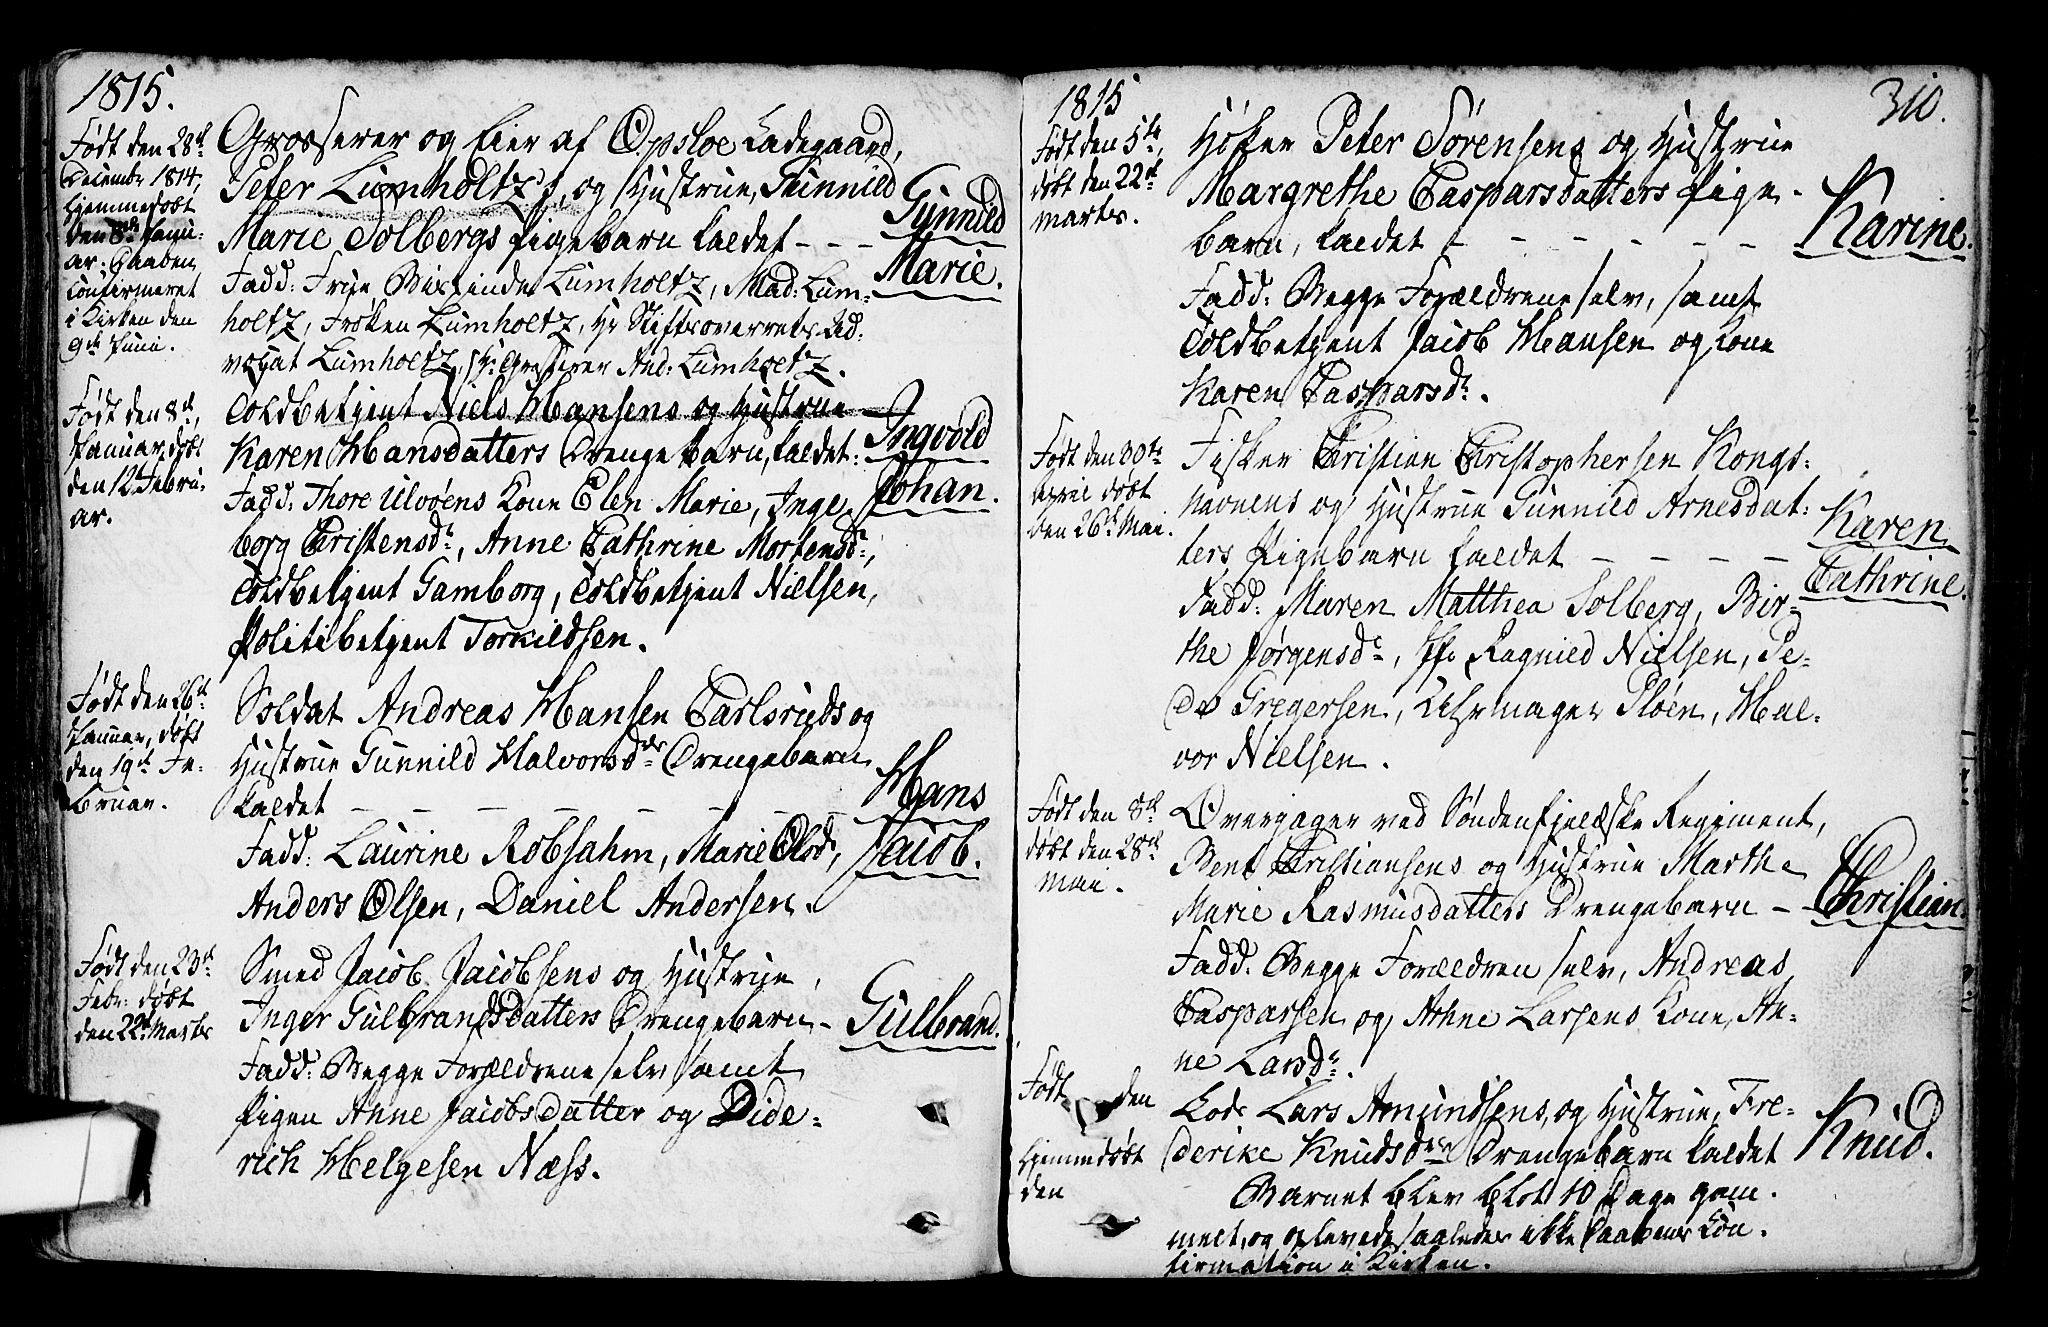 1815.
Født den 28de
Decembr 1814,
Hjemmedøbt
den 8de Janu:
ar. Daaben
Confirmeret
i Kirken den
9de Junii.
Grosserer og Eier af Opsloe Ladegaard,
Peter Lumholtz's, og Hustrue, Gunnild
Marie Solbergs Pigebarn kaldet - - -
Gunnild
Marie.
Fadd: Frue Bispinde Lumholtz, Mad: Lum-
holtz, Frøken Lumholtz, Hr Stiftsoverrets Ad:
vokat Lumholtz, Hr: Grosserer And: Lumholtz.
Født den 8de,
Januar, døbt
den 12te Febru:
ar.
Toldbetjent Niels Hansens og Hustrue
Karen Hansdatters Drengebarn, kaldet:
Ingvold
Johan.
Fadd: Thore Ulvøens Kone Elen Marie, Inge
borg Christensdr, Anne Cathrine Mortensdr,
Toldbetjent Gamborg, Toldbetjent Nielsen,
Politibetjent Torkildsen.
Født den 26de
Januar, døbt
den 19de Fe:
bruar.
Soldat Andreas Hansen Carlsruds og
Hustrue Gunnild Halvorsdrs Drengebarn
kaldet - - - - - - -
Hans
Jacob.
Fadd: Laurine Robsahm, Marie Olsdr,
Anders Olsen, Daniel Andersen.
Født den 23de
Febr: døbt
den 22de Marts
Smed Jacob Jacobsens og Hustrue,
Inger Gulbrandsdatters Drengebarn -
Gulbrand.
Fadd: Begge Forældrene selv samt
Pigen Anne Jacobsdatter og Dide:
rich Helgesen Næss.
1815
310.
Født den 5te,
døbt den 22de
marts.
Høker Peter Sørensens og Hustrue
Margrethe Caspersdatters Pige-
barn, kaldet - - - - - -
Karine.
Fadd: Begge Forældrene selv, samt
Toldbetjent Jacob Hansen og Kone
Karen Caspersdr.
Født den 30te
April døbt
den 26de Mai.
Fisker Christian Christophersen Kongs:
havnens og Hustrue Gunnild Arnesdat:
ters Pigebarn kaldet - - - -
Karen
Cathrine.
Fadd: Maren Matthea Solberg, Bir-
the Jørgensdr, Jfr Ragnild Nielsen, Pe-
der Gregersen, Uhrmager Pløen, Hal-
vor Nielsen.
Født den 8de
døbt den 28de
mai.
Overjæger ved Søndenfjeldske Regiment,
Bent Christiansens og Hustrue Marthe
Marie Rasmusdatters Drengebarn -
Christian.
Fadd. Begge Forældren selv, Andreas
Caspersen og Arhne Larsens Kone, An-
ne Larsdr.
Født den
Hjemmedøbt
den
Lods Lars Amundsens, og Hustrue, Fre-
derike Knudsdrs Drengebarn kaldet
Knud.
Barnet blev blot 10 Dage gam-
melt, og oplevede saaledes ikke Daabens Con-
firmation i Kirken.